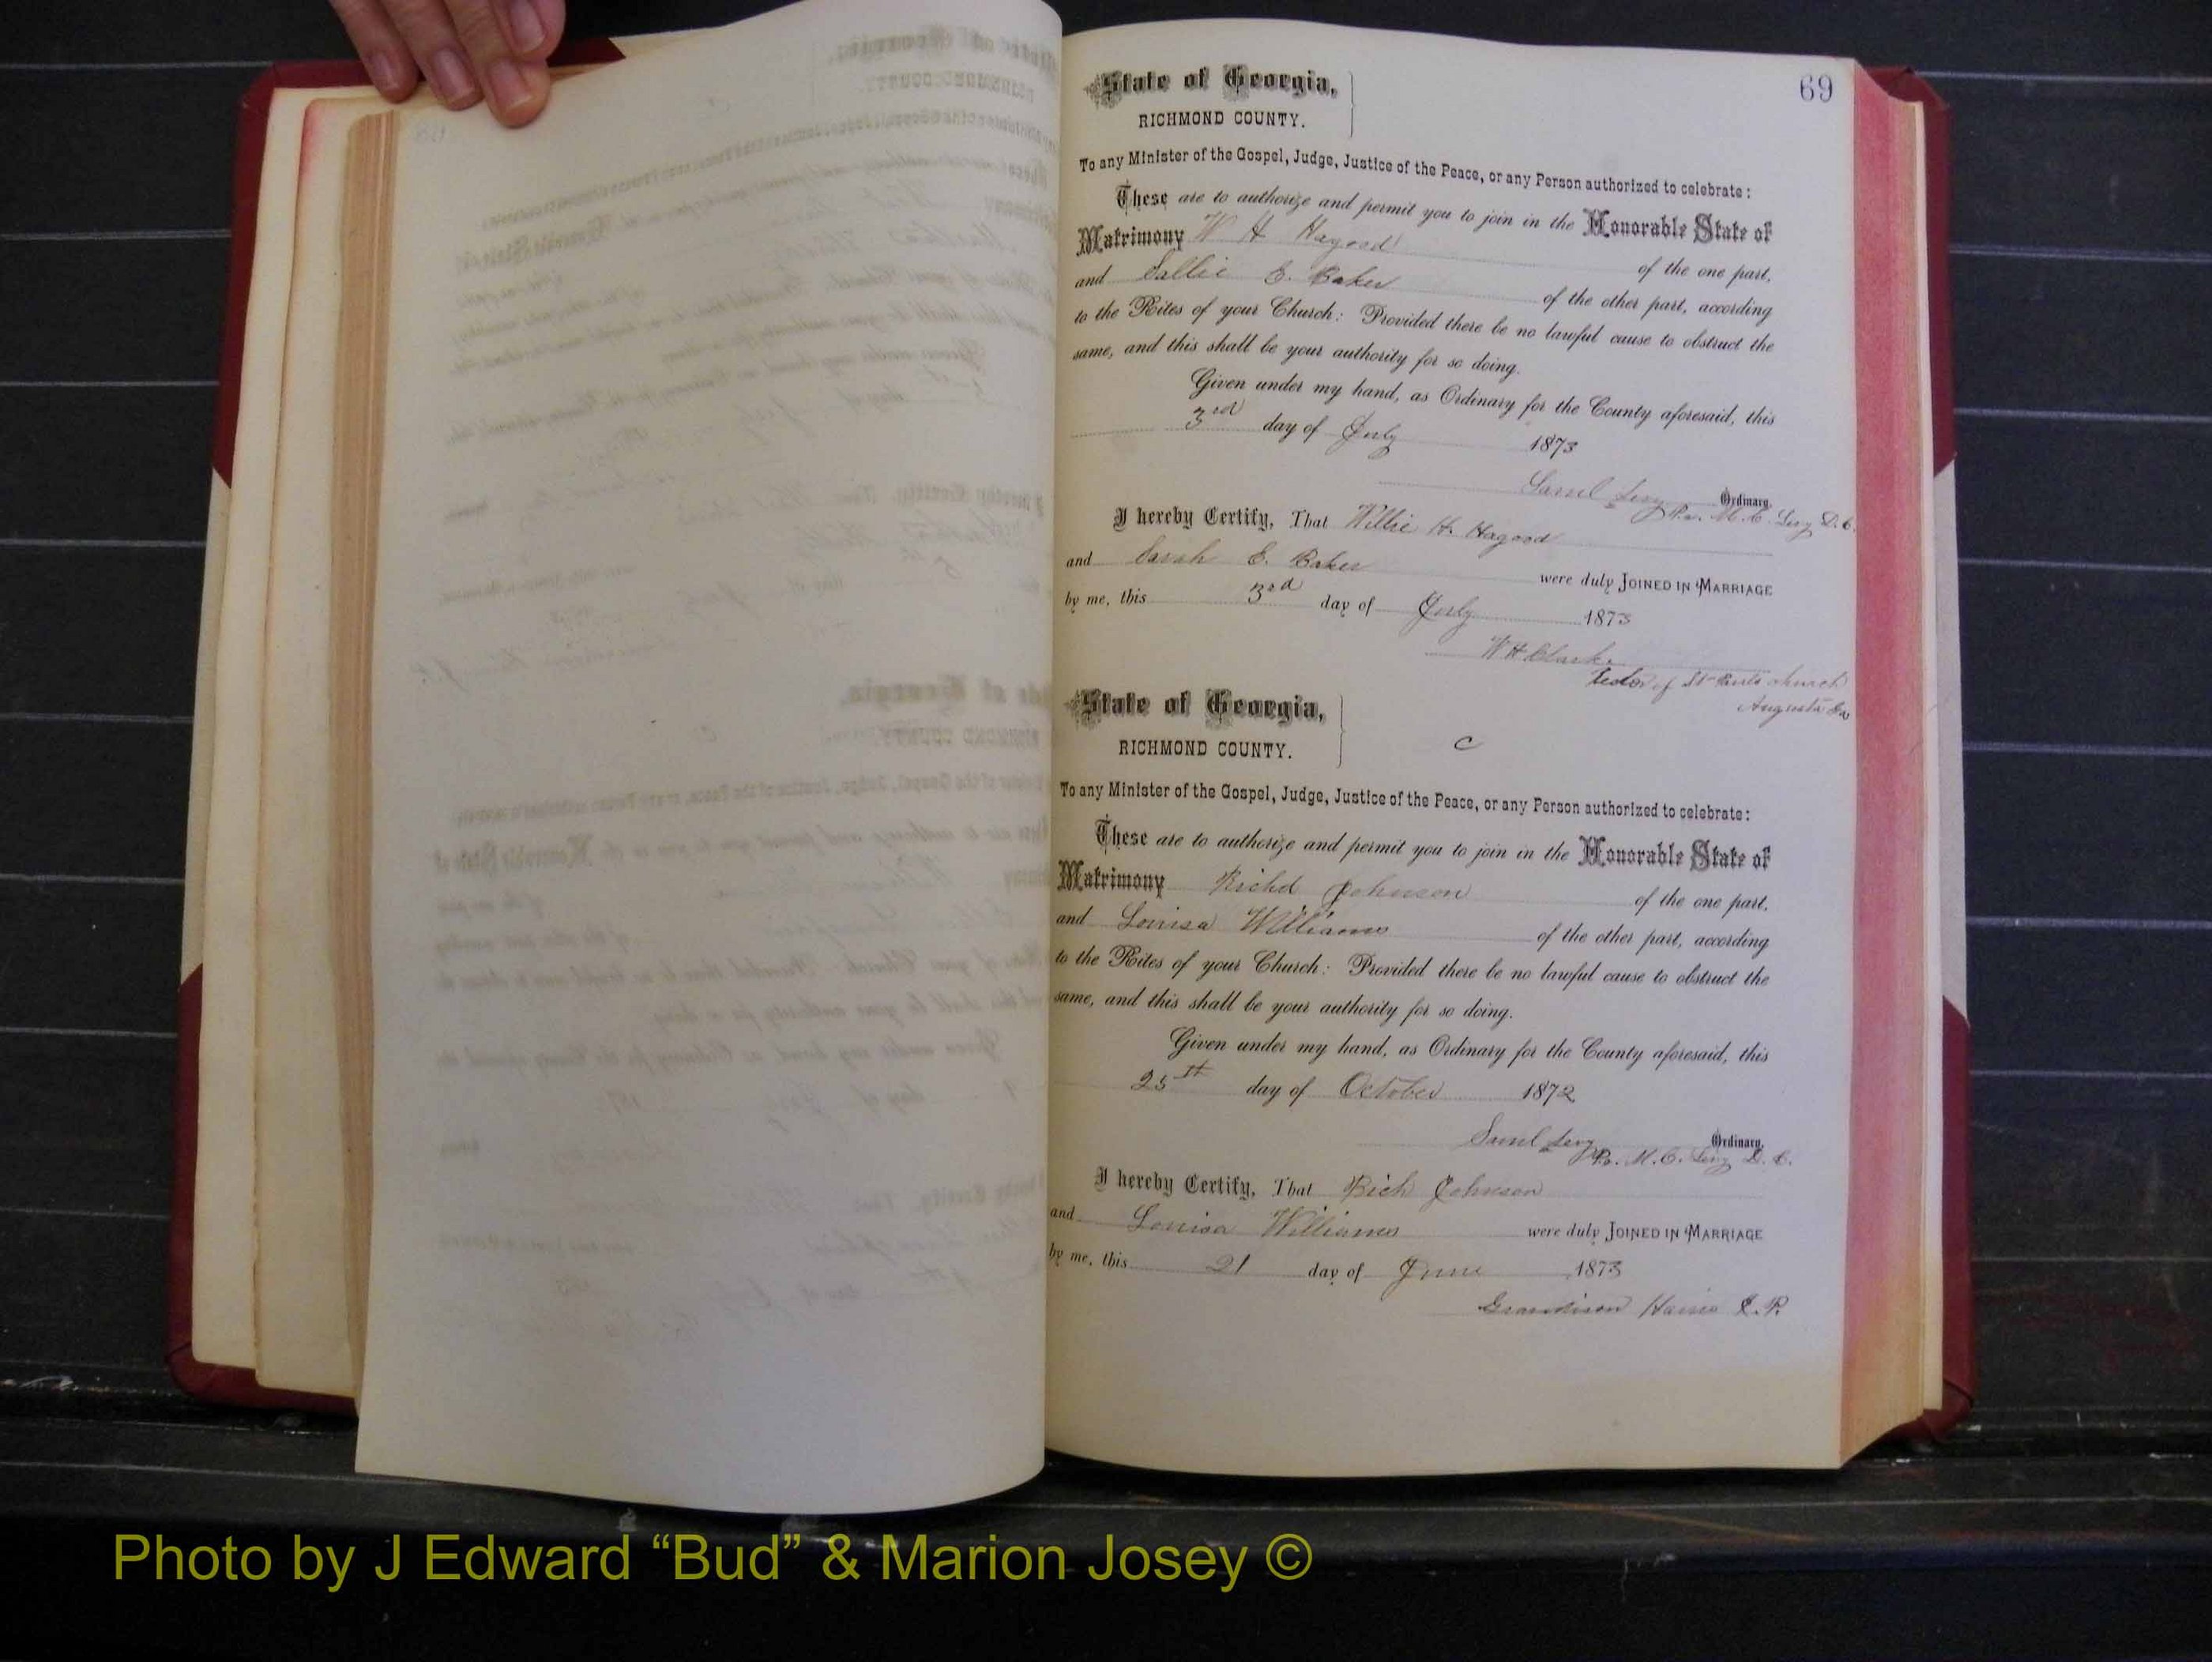 69
State of Georgia,
RICHMOND COUNTY.
To any Minister of the Gospel, Judge, Justice of the Peace, or any Person authorized to celebrate:
These are to authorize and permit you to join in the Honorable State of
Matrimony W H Hagood
of the one part,
and Sallie E. Baker of the other part, according
to the Rites of your Church: Provided there be no lawful cause to obstruct the
same, and this shall be your authority for so doing.
Given under my hand, as Ordinary for the County aforesaid, this
3rd day of July 1873
Saml Levy Ordinary.
Pr. M. C. Levy D. C.
I hereby Certify, That Willie H. Hagood
and Sarah E. Baker were duly JOINED IN MARRIAGE
by me, this 3rd day of July 1873
W H Clarke
Rector of St Pauls church
Augusta Ga
State of Georgia,
RICHMOND COUNTY. C
To any Minister of the Gospel, Judge, Justice of the Peace, or any Person authorized to celebrate:
These are to authorize and permit you to join in the Honorable State of
Matrimony Richd Johnson of the one part,
and Louisa Williams of the other part, according
to the Rites of your Church: Provided there be no lawful cause to obstruct the
same, and this shall be your authority for so doing.
Given under my hand, as Ordinary for the County aforesaid, this
25st day of October 1872
Saml Levy Ordinary.
Pr. M. C. Levy D. C.
I hereby Certify, That Rich Johnson
and Louisa Williams were duly JOINED IN MARRIAGE
by me, this 21 day of June 1873
Grandison Harris J. P.
Photo by J Edward “Bud” & Marion Josey ©